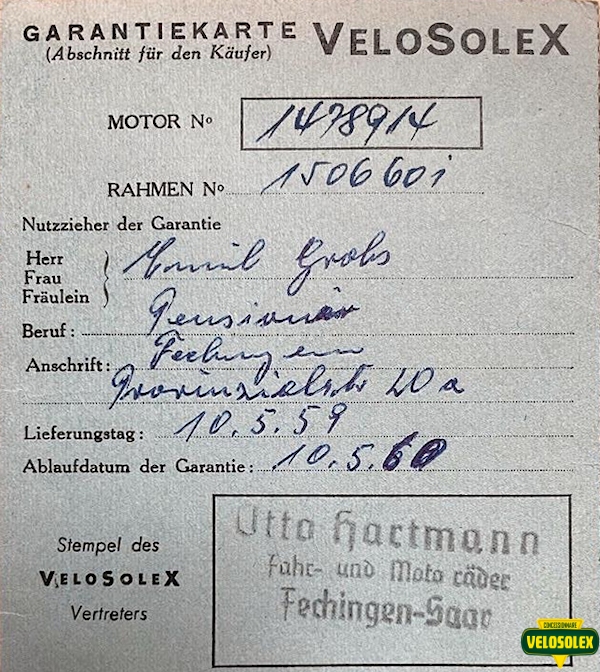 GARANTIEKARTE VELOSOLEX
(Abschnitt für den Käufer)
MOTOR No 1478914
RAHMEN No 1506601
Nutzzieher der Garantie
Herr
Frau Emil
Fräulein
Beruf: Pensionär
Anschrift: Fechingen
Provinzialstr 20 a
Lieferungstag: 10.5.59
Ablaufdatum der Garantie: 10.5.60
Stempel des
VELOSOLEX
Vertreters
Otto Hartmann
Fahr- und Moto räder
Fechingen-Saar
CONCESSIONNAIRE
VELOSOLEX